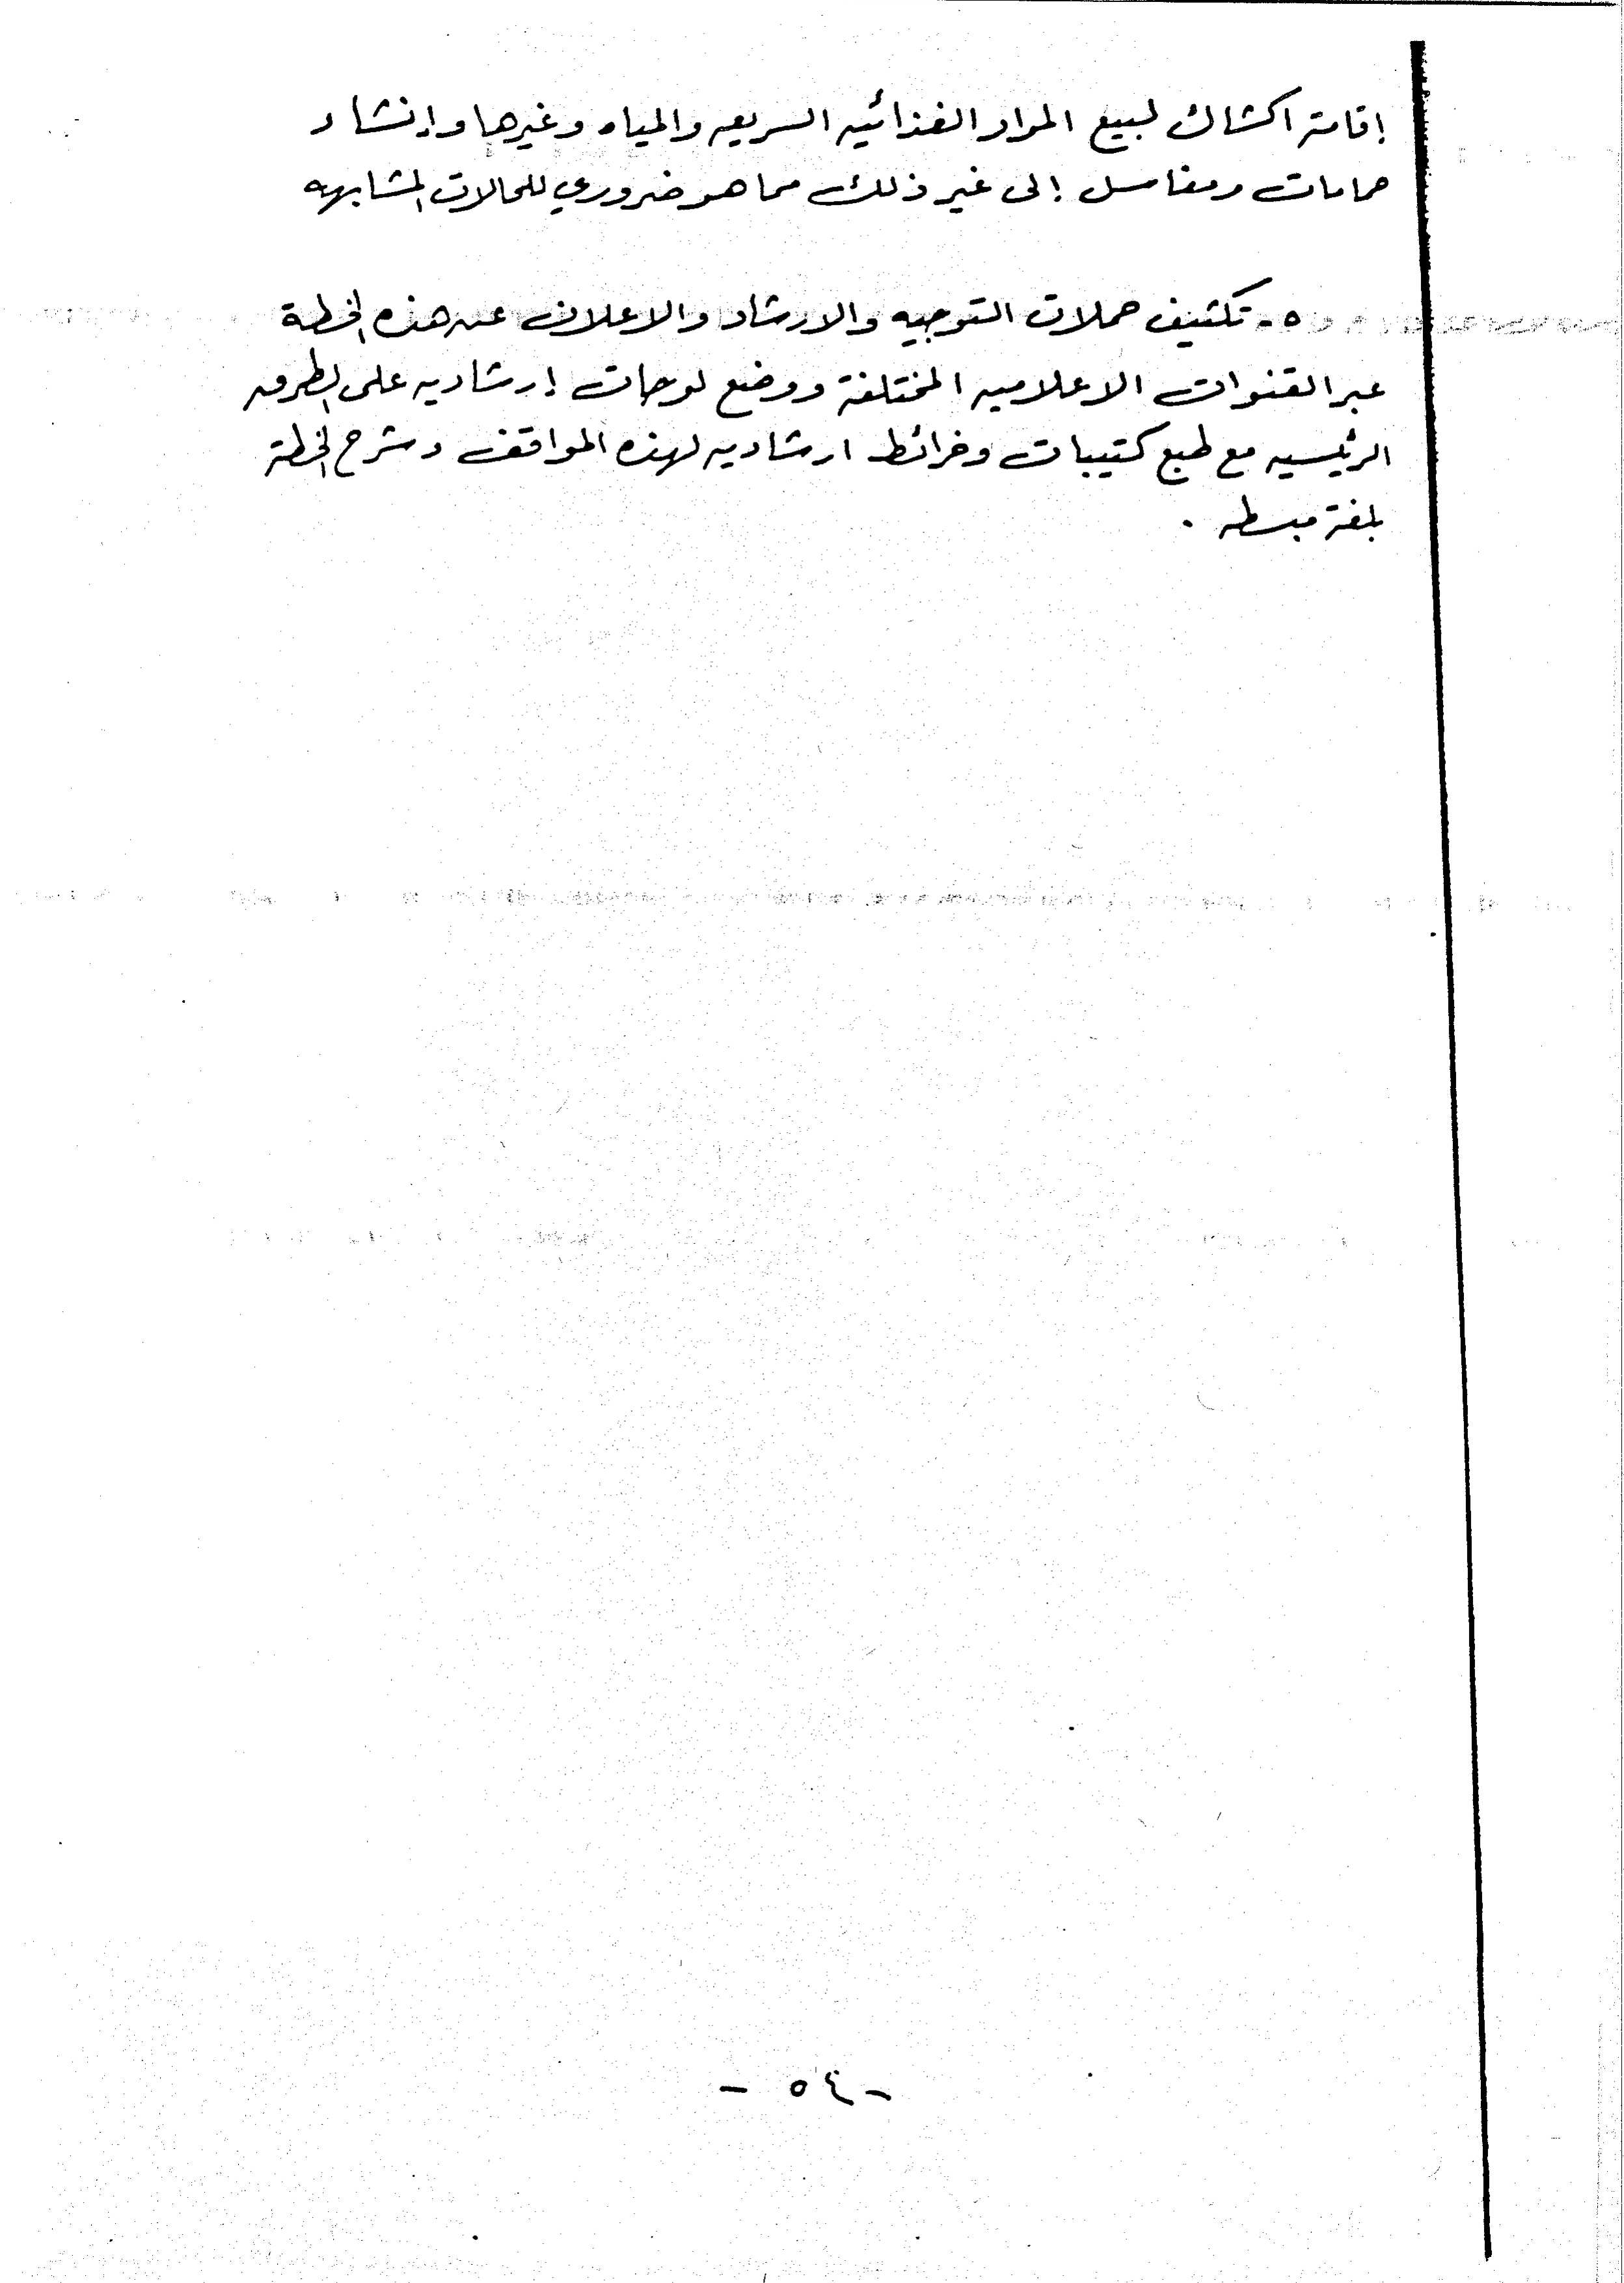 إقامة اكشاك لبيع المواد الغذائيه السريعه والمياه وغيرها وإنشاء
حمامات ومغاسل إلى غير ذلك مما هو ضروري للحالات المشابهه
٥ - تكثيف حملات التوجيه والارشاد والاعلان عن هذه الخطة
عبر القنوات الاعلاميه المختلفة ووضع لوحات إرشاديه على الطرق
الرئيسيه مع طبع كتيبات وخرائط ارشاديه لهذه المواقف وشرح الخطة
بلغة مبسطه .
- ٥٤ -